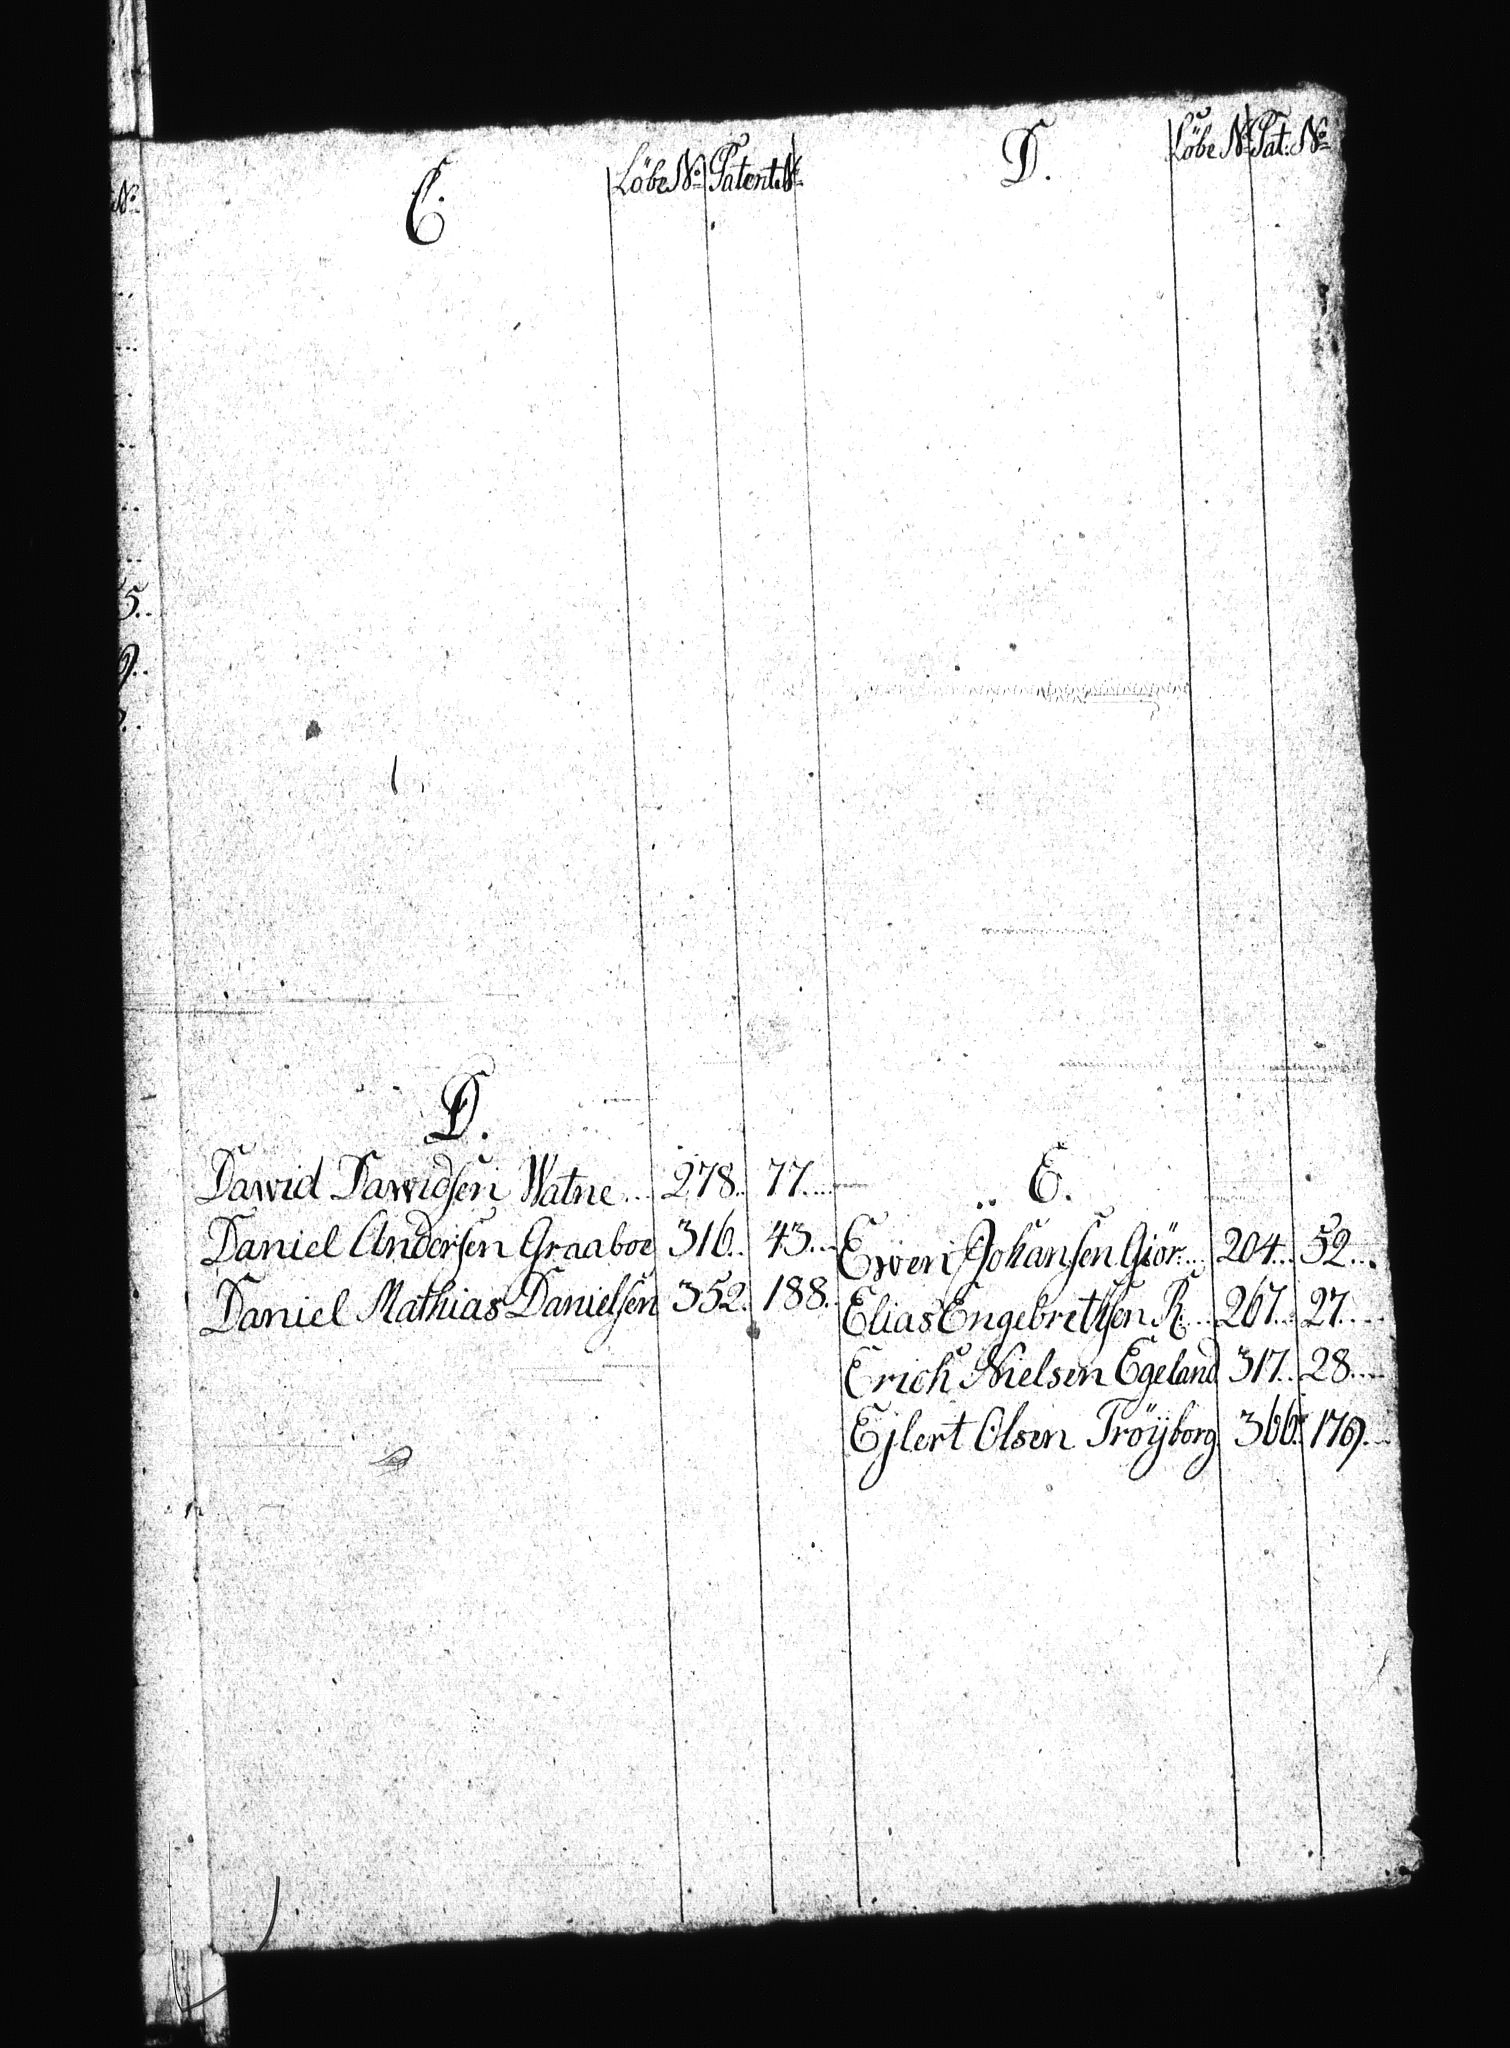 No
5..
9..
C.
Löbe No Patent No
D.
Dawid Dawidsen Watne... 278.. 77....
Daniel Andersen Graaboe 316.. 43...
Daniel Mathias Danielsen 352. 188..
D.
Löbe No Pat: No
E.
Ewen Johansen Giör.... 204... 52...
Elias Engebrethsen R.... 267... 27....
Erich Nielsen Egeland 317.. 28....
Ejlert Olsen Tröyborg. 366.. 179...